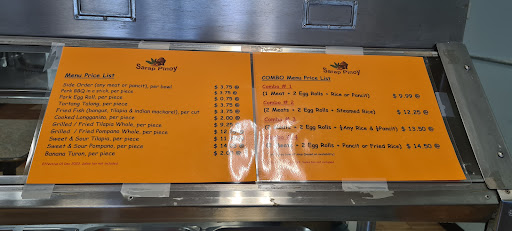 Sarap Pinoy
Menu Price List
Side-Order (any meat or pancit), per bowl $ 3.75 @
Pork BBQ in a stick, per piece $ 3.75 @
Pork Egg Roll, per piece $ 0.75 @
Tortang Talong, per piece
Fried Fish (bangus, Tilapia & Indian mackerel), per cut $ 3.75 @
Cooked Longganiza, per piece $ 2.00 @
Grilled / Fried Tilapia Whole, per piece
Grilled / Fried Pompano Whole, per piece
Sweet & Sour Tilapia, per piece
Sweet & Sour Pompano, per piece
Banana Turon, per piece
Sarap Pinoy
COMBO Menu Price List
Combo # 1
(1 Meat + 2 Egg Rolls + Rice or Pancit) $ 9.99 @
Combo # 2
(2 Meats + 2 Egg Rolls + Steamed Rice) $ 12.25 @
Combo
Meats + 2 Egg Rolls + (Any Rice & Pancit) $ 13.50 @
Meats + 2 Egg Rolls + Pancit or Fried Rice) $ 14.50 @